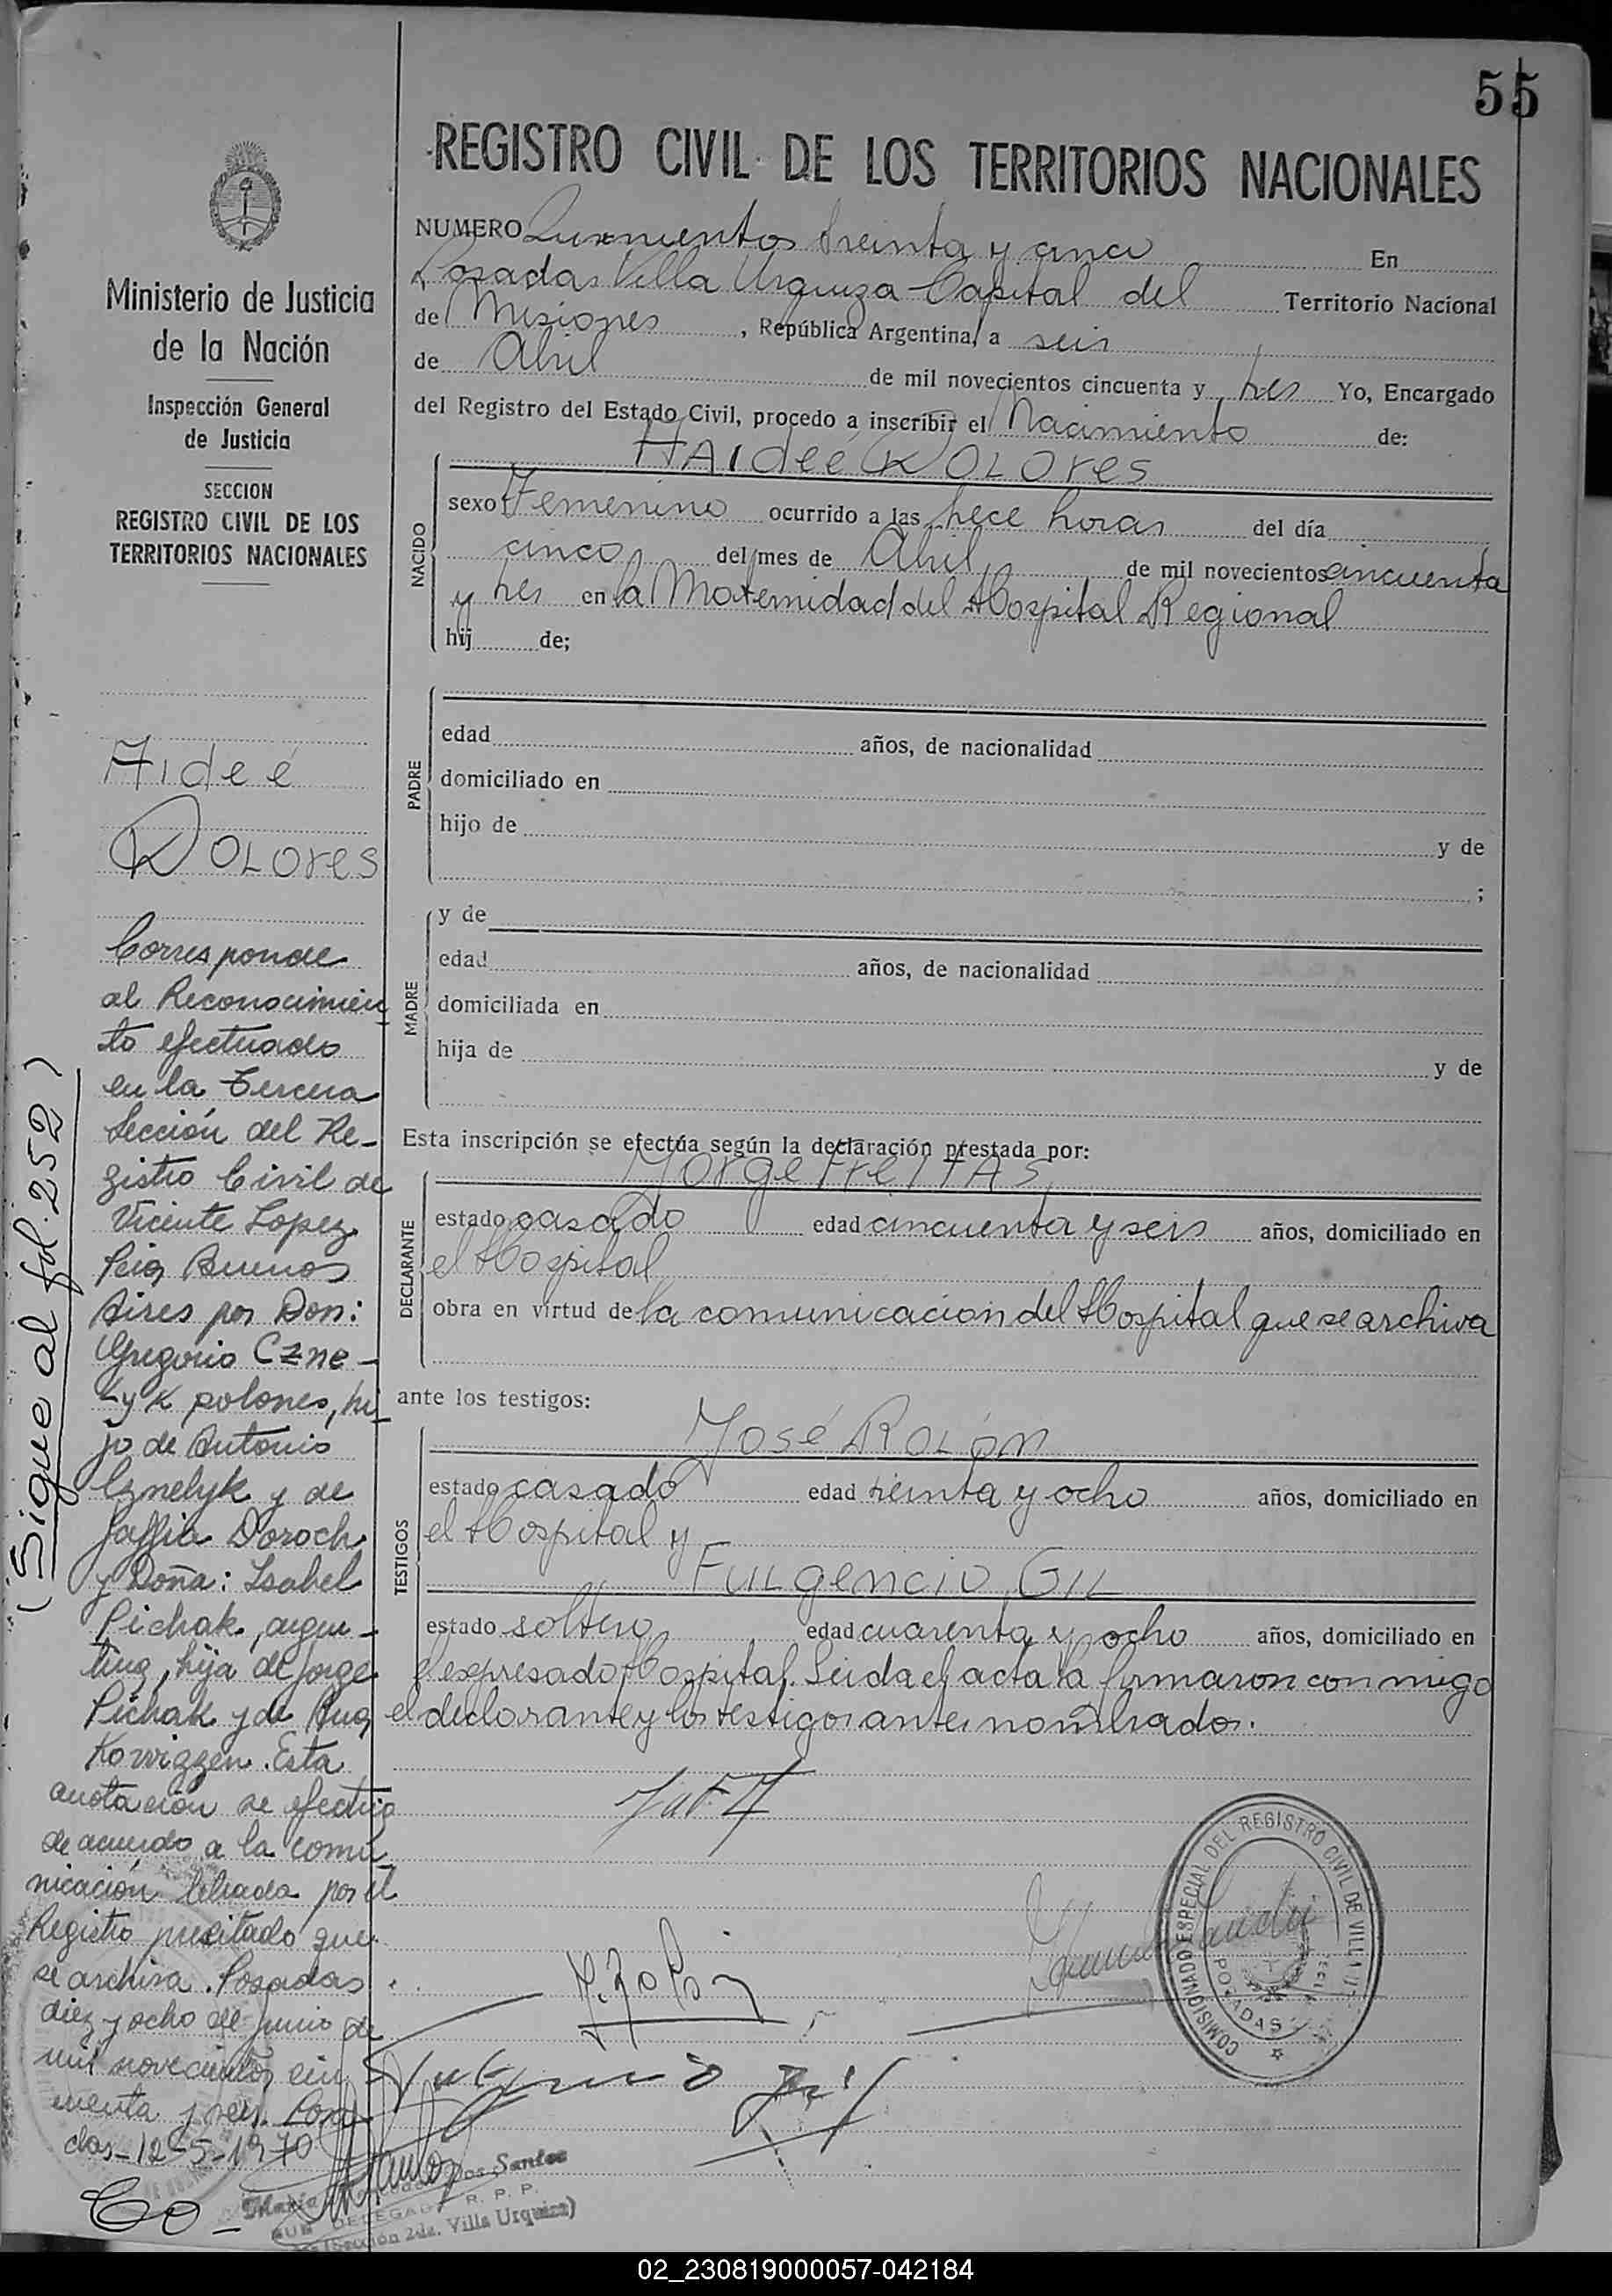 55
REGISTRO CIVIL DE LOS TERRITORIOS NACIONALES
Ministerio de Justicia
de la Nación
Inspección General
de Justicia
SECCION
REGISTRO CIVIL DE LOS
TERRITORIOS NACIONALES
Aideé
DOLOres
Corresponde
al Reconocimien
to efectuado
en la Tercera
Sección del Re-
gistro Civil de
Vicente Lopez
Pcia Buenos
Aires por Don:
Gregorio Czne-
lyk polones, hi-
jo de Antonio
Cznelyk y de
Saffia Doroch
y Doña: Isabel
Pichak, argen-
tina, hija de Jorge
Pichak y de Ana
Korvizzen. Esta
anotación se efectúa
de acuerdo a la comu
nicación librada por el
Registro precitado que
se archiva. Posadas
diez y ocho de Junio de
mil novecientos cin
cuenta y seis. Posa
das-12-5-1970
Co-
(Sigue al fol. 252)
NUMERO Quinientos treinta y cinco En
Posadas Villa Urquiza Capital del Territorio Nacional
de Misiones, República Argentina, a seis
de Abril de mil novecientos cincuenta y tres Yo, Encargado
del Registro del Estado Civil, procedo a inscribir el Nacimiento de:
HAIdeé DOLOres
NACIDO
sexo Femenino ocurrido a las trece horas del día
cinco del mes de Abril de mil novecientos cincuenta
y tres en la Maternidad del Hospital Regional
hij de;
PADRE
edad años, de nacionalidad
domiciliado en
hijo de y de
;
MADRE
y de
edad años, de nacionalidad
domiciliada en
hija de y de
Esta inscripción se efectúa según la declaración prestada por:
JorgeFreITAS
DECLARANTE
estado casado edad cincuenta y seis años, domiciliado en
el Hospital
obra en virtud de la comunicacion del Hospital que se archiva
ante los testigos:
José ROLÓn
TESTIGOS
estado casado edad treinta y ocho años, domiciliado en
el Hospital y
FuLgencio GIL
estado soltero edad cuarenta y ocho años, domiciliado en
el expresado Hospital. Leida el acta la firmaron con migo
el declarante y los testigos antes nombrados.
COMISIONADO ESPECIAL DEL REGISTRO CIVIL DE VILLA
POSADAS
María dos Santos
SUB DELEGADA R. P. P.
(Sección 2da. Villa Urquiza)
02_230819000057-042184